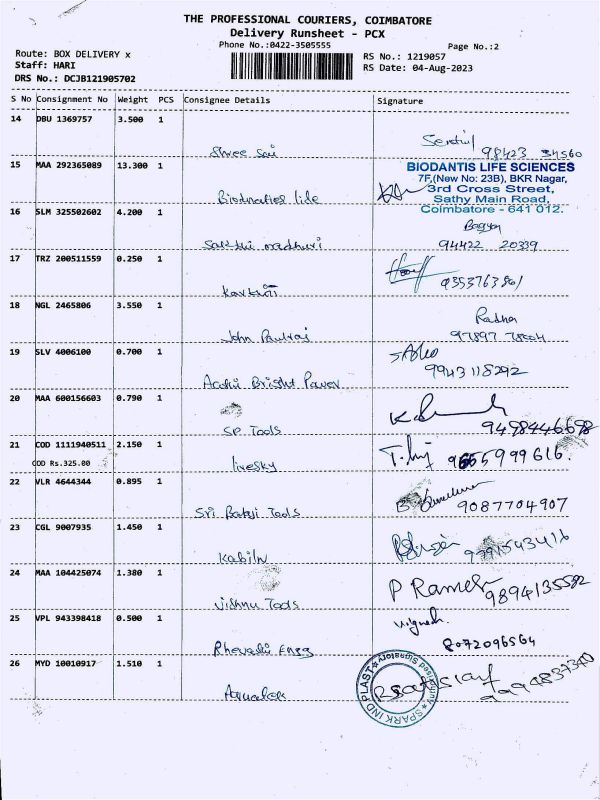 THE PROFESSIONAL COURIERS, COIMBATORE
Delivery Runsheet - PCX
Phone No.:0422-3505555
Page No.:2
Route: BOX DELIVERY x
Staff: HARI
DRS No.: DCJB121905702
RS No.: 1219057
RS Date: 04-Aug-2023
S No Consignment No Weight PCS Consignee Details Signature
14 DBU 1369757 3.500 1
Shree Sai 98423 34560
15 MAA 292365089 13.300 1
BIODANTIS LIFE SCIENCES
7F,(New No: 23B), BKR Nagar,
3rd Cross Street,
Sathy Main Road,
Coimbatore - 641 012.
16 SLM 325502602 4.200 1
94422 20339
17 TRZ 200511559 0.250 1
18 NGL 2465806 3.550 1
Radha
John Paulraj
19 SLV 4006100 0.700 1
9943118292
Bright Power
20 MAA 600156603 0.790 1
SP Tools 9498446698
21 COD 1111940511 2.150 1
COD Rs.325.00
livesky 9655999616.
22 VLR 4644344 0.895 1
Sri Balaji Tools 9087704907
23 CGL 9007935 1.450 1
Kabiln
24 MAA 104425074 1.380 1
P Ramesh 9894135582
Vishnu Tools
25 VPL 943398418 0.500 1
Vignesh
8072096564
26 MYD 10010917 1.510 1
SPARK IND PLAST
Authorised Signatory